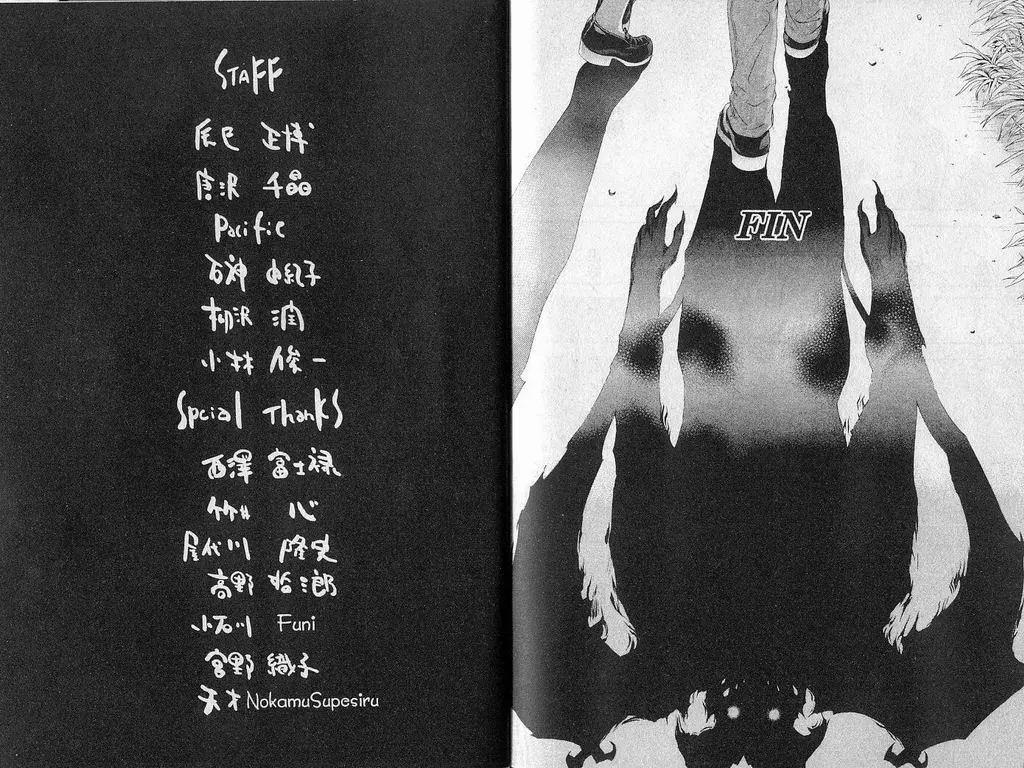 STAFF
辰巳 正博
唐沢 千晶
Pacific
石神 由紀子
柳沢 潤
小林 俊一
Spcial Thanks
西澤 富士禄
竹井 心
屋代川 隆史
高野 哲郎
小石川 Funi
宮野 織子
天才 NokamuSupesiru
FIN